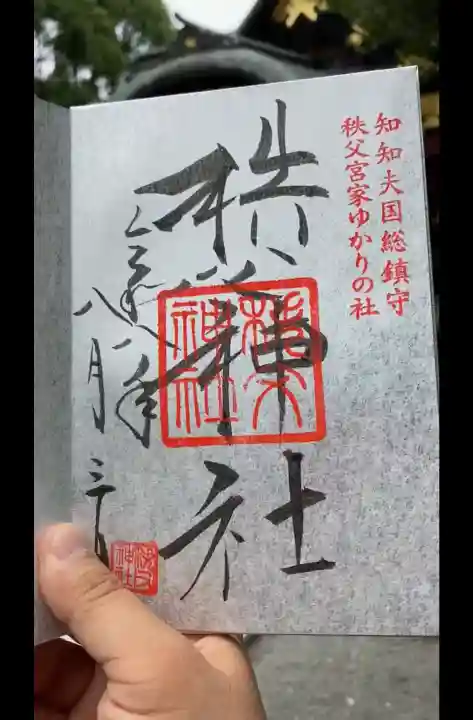 知知夫国総鎮守
秩父宮家ゆかりの社
秩父神社
八月三日
秩父神社